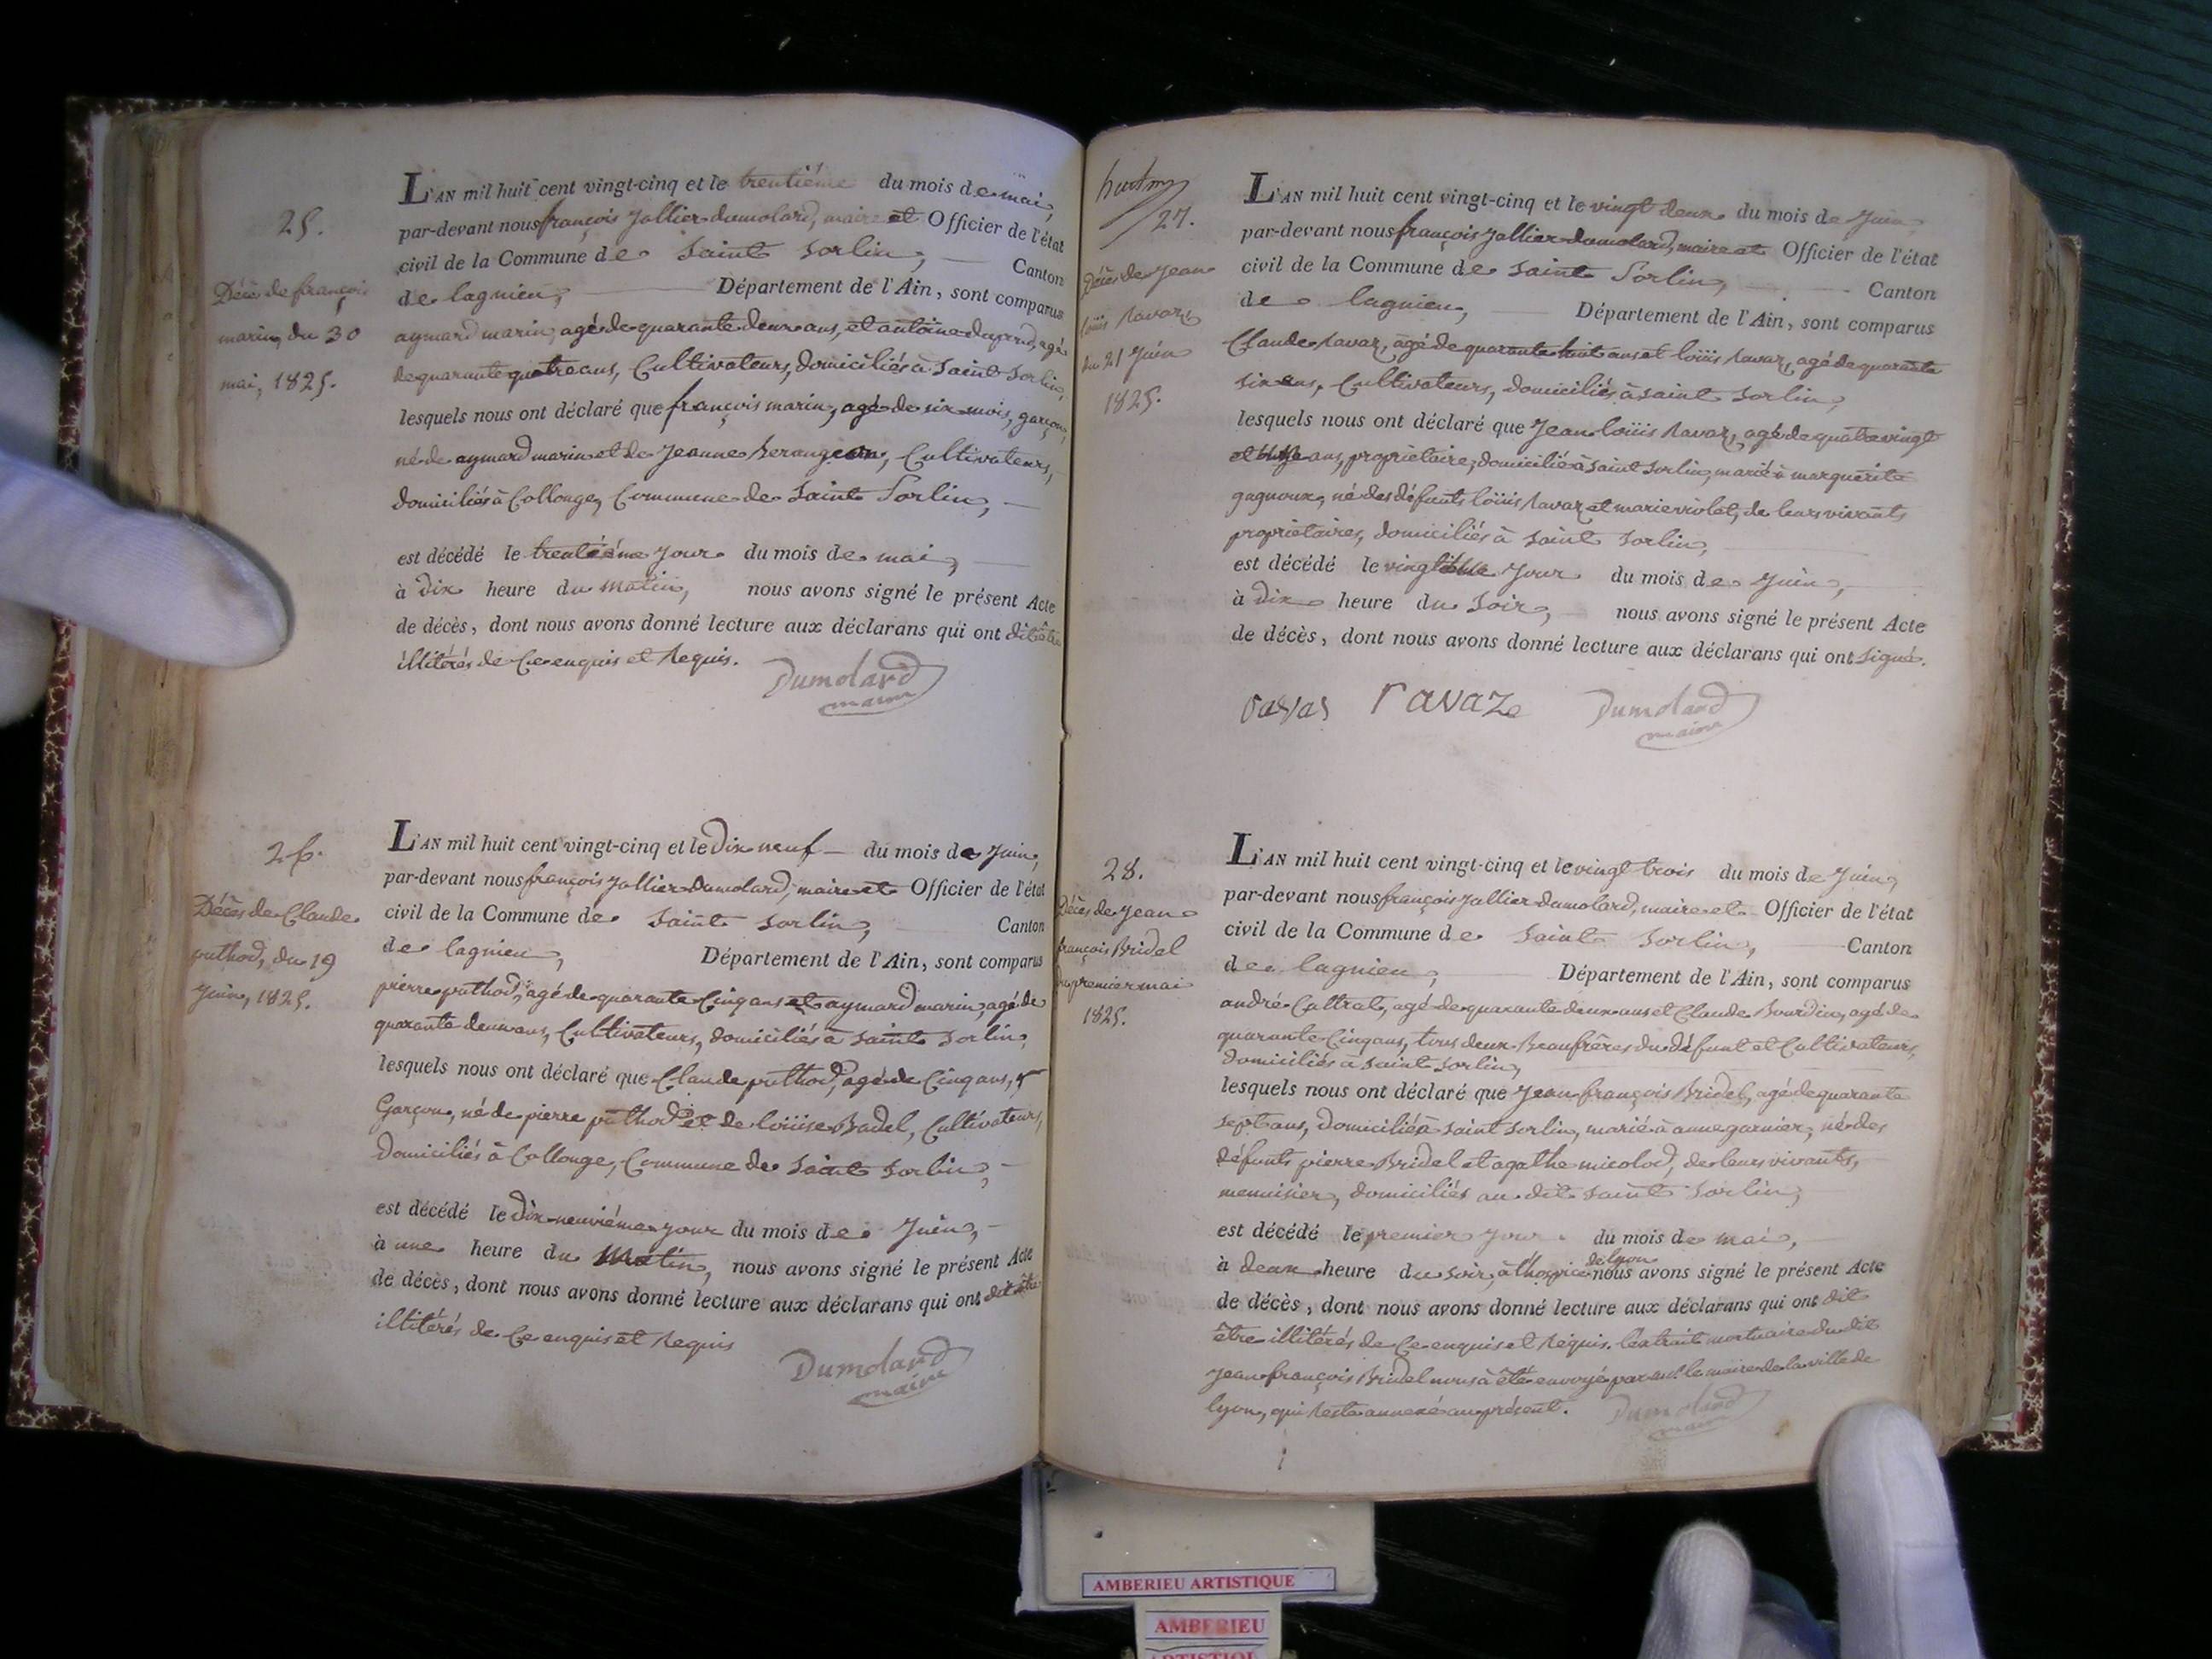 25.
Décès de françois
marin, du 30
mai, 1825.
L'AN mil huit cent vingt-cinq et le trentiéme du mois de mai,
par-devant nous françois Jallier dumolard, maire et Officier de l'état
civil de la Commune de Saint Sorlin, Canton
de lagnieu, Département de l'Ain, sont comparus
aymard marin, agé de quarante deux ans, et antoine dupond, agé
de quarante quatre ans, Cultivateurs, domiciliés à Saint Sorlin,
lesquels nous ont déclaré que françois marin, agé de six mois, garçon,
né de aymard marin et de Jeanne Berangeon, Cultivateurs,
domiciliés à Collonge, Commune de Saint Sorlin,
est décédé le trentiéme jour du mois de mai,
à dix heure du matin, nous avons signé le présent Acte
de décès, dont nous avons donné lecture aux déclarans qui ont dit être
illitérés de Ce enquis et Requis.
Dumolard
maire
26.
Décès de Claude
puthod, du 19
Juin, 1825.
L'AN mil huit cent vingt-cinq et le Dix neuf du mois de Juin,
par-devant nous françois Jallier Dumolard, maire et Officier de l'état
civil de la Commune de Saint Sorlin, Canton
de lagnieu, Département de l'Ain, sont comparus
pierre puthod, agé de quarante Cinq ans et aymard marin, agé de
quarante deux ans, Cultivateurs, domiciliés à Saint Sorlin,
lesquels nous ont déclaré que Claude puthod, agé de Cinq ans,
Garçon, né de pierre puthod et de loüise Badel, Cultivateurs,
Domiciliés à Collonge, Commune de Saint Sorlin,
est décédé le Dix-neuviéme jour du mois de Juin,
à une heure du Matin, nous avons signé le présent Acte
de décès, dont nous avons donné lecture aux déclarans qui ont dit être
illitérés de Ce enquis et Requis
Dumolard
maire
27.
Décès de Jean
loüis Ravaz
du 21 Juin
1825.
L'AN mil huit cent vingt-cinq et le vingt deux du mois de Juin,
par-devant nous françois Jallier Dumolard, maire et Officier de l'état
civil de la Commune de Saint Sorlin, Canton
de lagnieu, Département de l'Ain, sont comparus
Claude Ravaz, agé de quarante huit ans et loüis Ravaz, agé de quarante
six ans, Cultivateurs, domiciliés à saint Sorlin,
lesquels nous ont déclaré que Jean loüis Ravaz, agé de quatre vingt
et ans, propriétaire, domicilié à saint Sorlin, marié à marguerite
gagnoux, né des défunts loüis Ravaz et marie violet, de leurs vivants
propriétaires, domiciliés à saint Sorlin,
est décédé le jour du mois de Juin,
à Dix heure du Soir, nous avons signé le présent Acte
de décès, dont nous avons donné lecture aux déclarans qui ont signé.
ravaze
Dumolard
maire
28.
Décès de Jean
françois Bridel
du premier mai
1825.
L'AN mil huit cent vingt-cinq et le vingt trois du mois de Juin,
par-devant nous françois Jallier Dumolard, maire et Officier de l'état
civil de la Commune de Saint Sorlin, Canton
de lagnieu, Département de l'Ain, sont comparus
andré Cattrat, agé de quarante deux ans et Claude Bourdin, agé de
quarante Cinq ans, tous deux Beaufrères du défunt et Cultivateurs,
domiciliés à saint Sorlin,
lesquels nous ont déclaré que Jean françois Bridel, agé de quarante
sept ans, domicilié à saint Sorlin, marié à anne garnier, né des
défunts pierre Bridel et agathe micolod, de leurs vivants,
menuisier, domiciliés au dit saint Sorlin,
est décédé le premier jour du mois de mai,
à deux heure du soir, à l'hospice de lyon nous avons signé le présent Acte
de décès, dont nous avons donné lecture aux déclarans qui ont dit
être illitérés de Ce enquis et Requis. l'extrait mortuaire du dit
Jean françois Bridel nous à été envoyé par mr. le maire de la ville de
lyon, qui Reste annexé au présent.
Dumolard
maire
AMBERIEU ARTISTIQUE
AMBERIEU
ARTISTIQUE